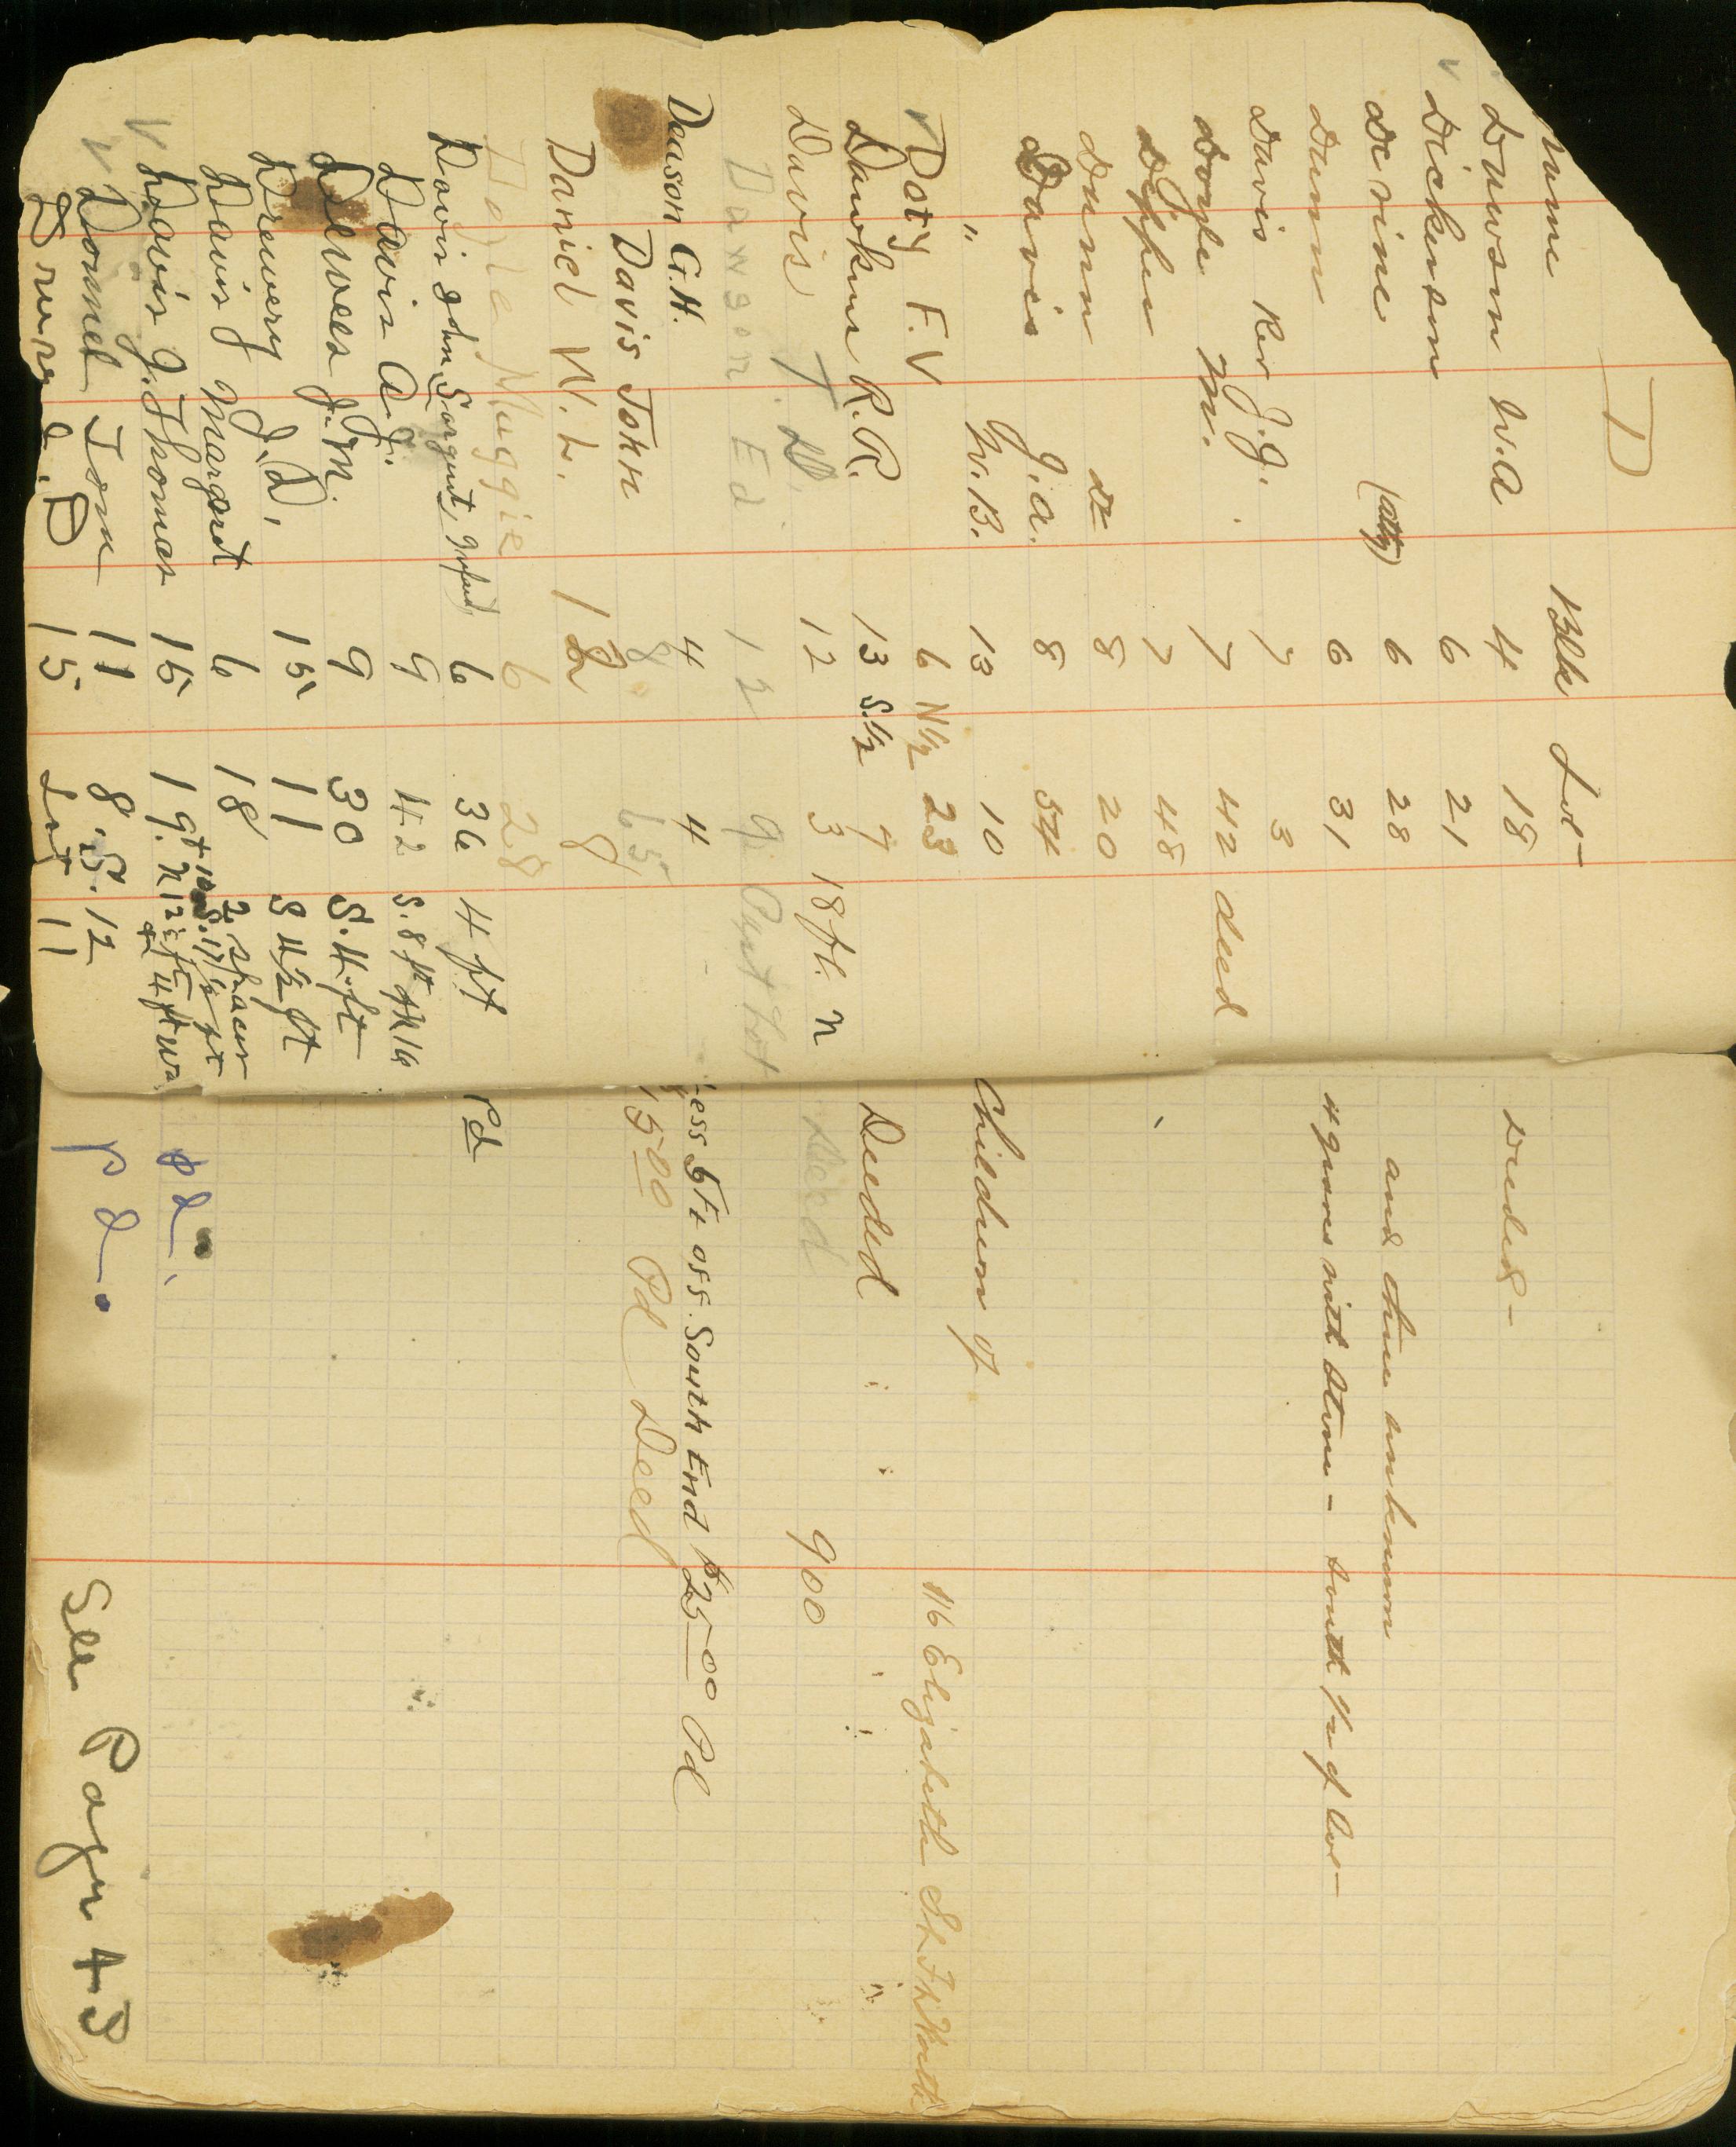 D
Name Blk Lot
Dawson W.A 4 18 Deeded -
✓ Dickenson 6 21
Devine (atty) 6 28 and three unknown
Dunn 6 31 4 graves with stone - south 1/2 of lot -
Davis Rev J.J. 7 3
Doyle M. 7 42 deed
7 48
Dunn 8 20
Davis J.A. 8 54
" W.B. 13 10 Children of
✓ Doty F.V 6 N½ 23 116 Elizabeth St Ft Worth
Dawkins R.R. 13 S.½ 7 Deeded
Davis T.D. 12 3 18 ft. N Deed 900
Dawson Ed. 12 9. Part Lot
Deason G.H. 4 4 Less 5 Ft off South End $25 00 Pd
Davis John 8 65 15 00 Pd Deed
Daniel W.L. 12 8
Doyle Maggie 6 28
Davis John Sargent, Infant 6 36 4 ft Pd
Davis A.J. 9 42 S. 8 ft
Dewees J.M. 9 30 S. 4 ft
Drewery J.D. 15 11 S 4½ ft
Davis Margaret 6 18 2 spaces
✓ Davis J. Thomas 15 19 pd.
✓ Donnel Tom 11 8. S. 12 pd.
15 Lot 11 See Page 43